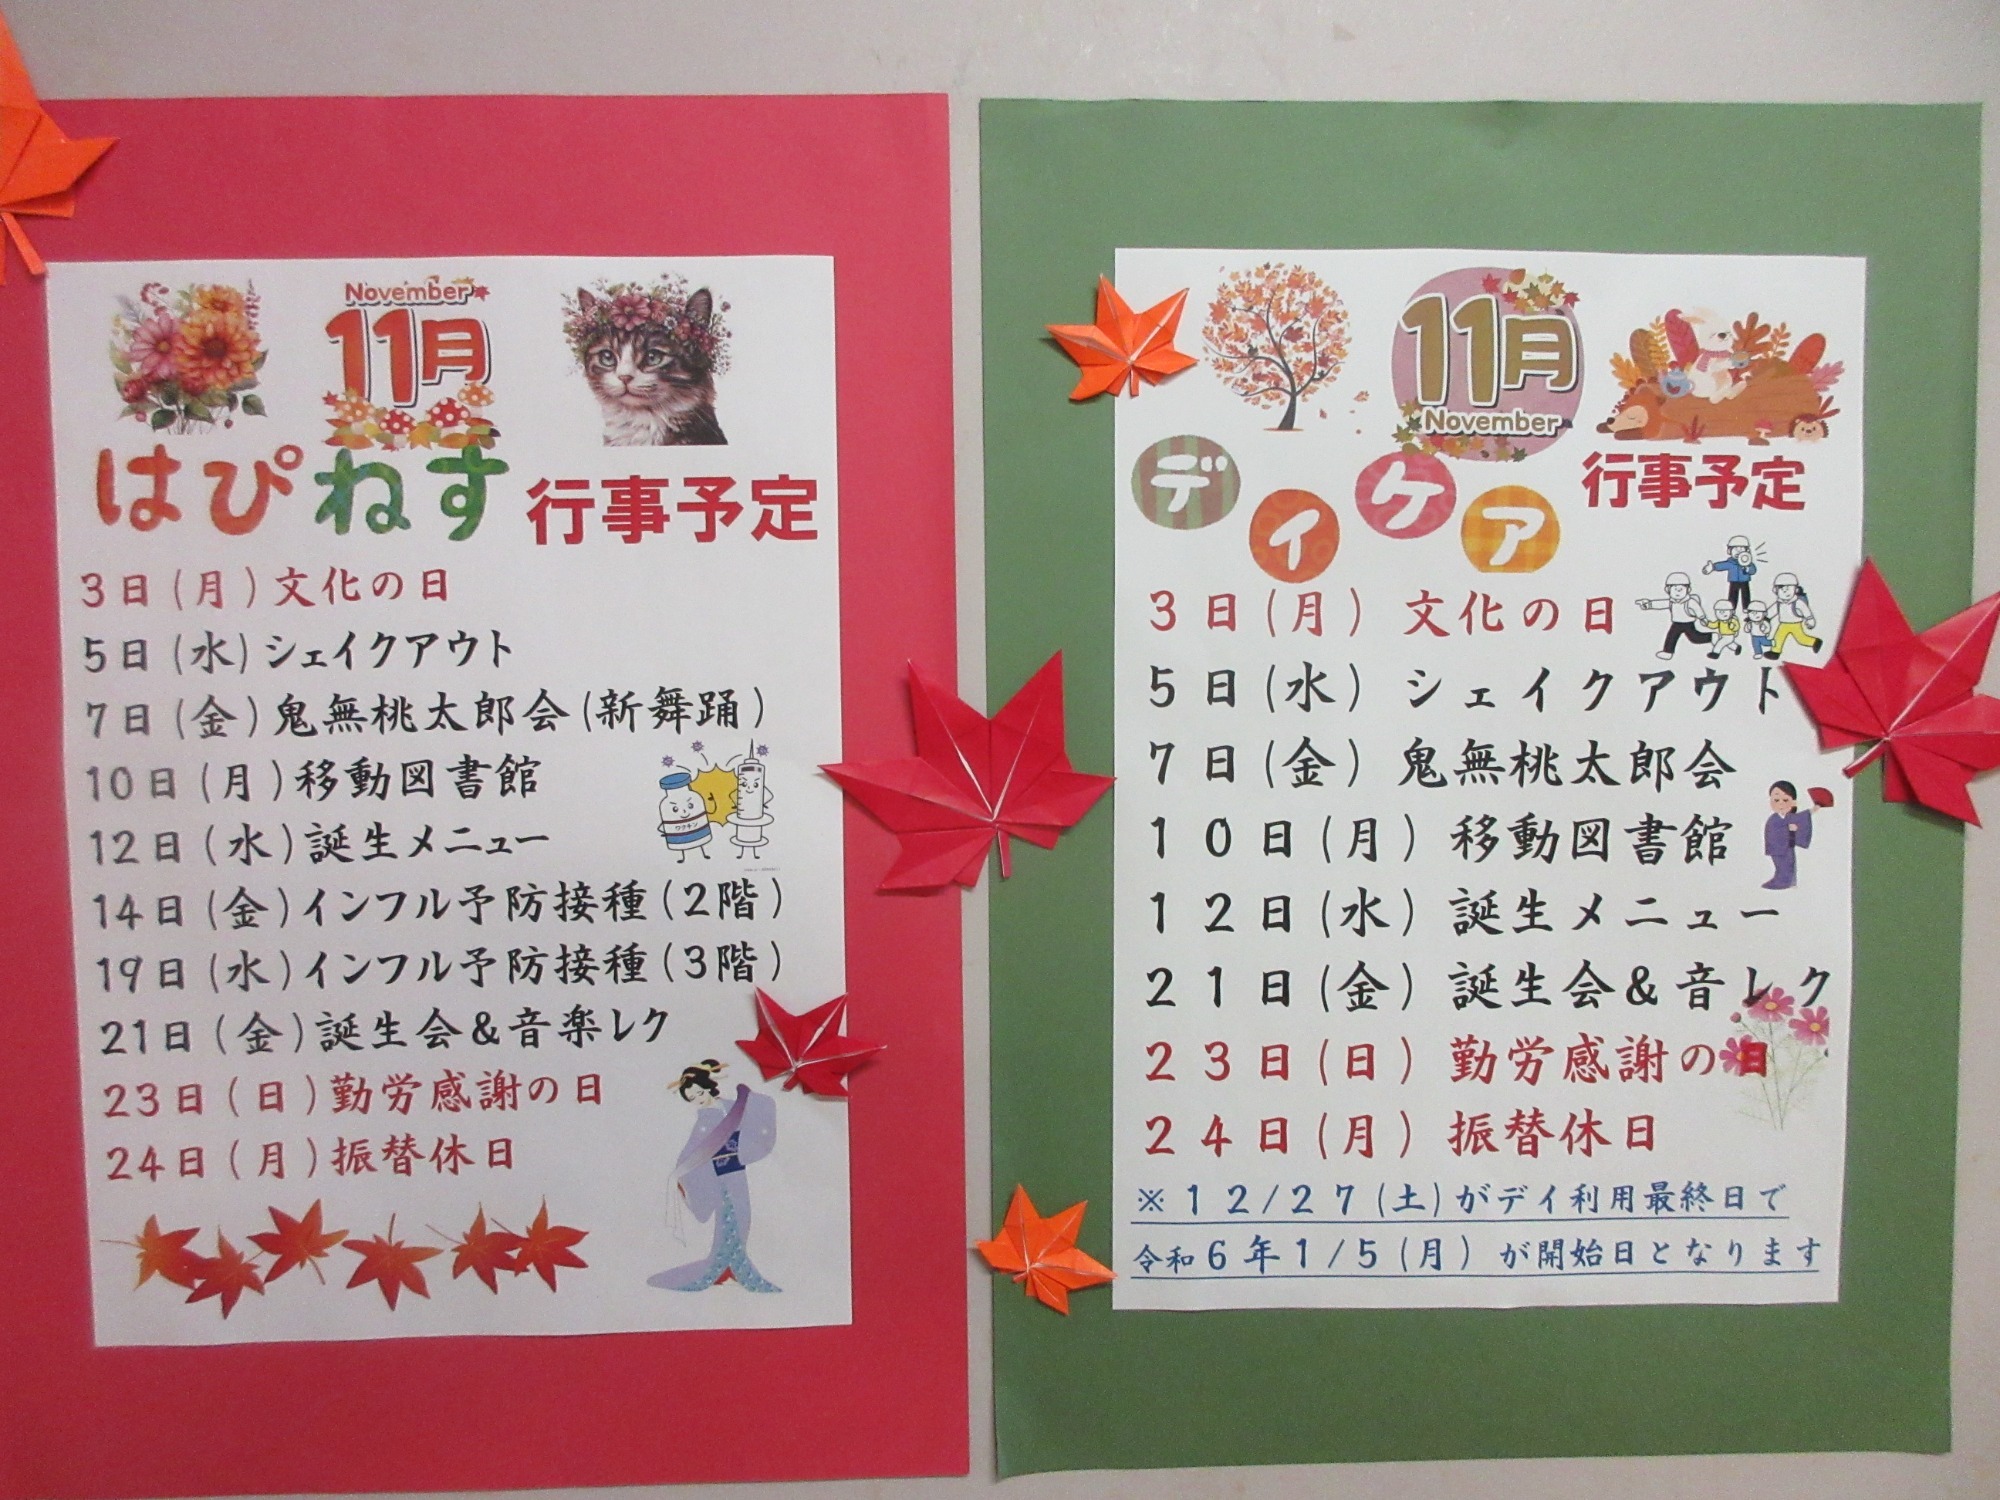 November
11月
はぴねす 行事予定
3日(月)文化の日
5日(水)シェイクアウト
7日(金)鬼無桃太郎会(新舞踊)
10日(月)移動図書館
12日(水)誕生メニュー
14日(金)インフル予防接種(2階)
19日(水)インフル予防接種(3階)
21日(金)誕生会&音楽レク
23日(日)勤労感謝の日
24日(月)振替休日
ワクチン
11月
November
デイケア 行事予定
3日(月) 文化の日
5日(水) シェイクアウト
7日(金) 鬼無桃太郎会
10日(月) 移動図書館
12日(水) 誕生メニュー
21日(金) 誕生会&音レク
23日(日) 勤労感謝の日
24日(月) 振替休日
※12/27(土)がデイ利用最終日で
令和6年1/5(月)が開始日となります